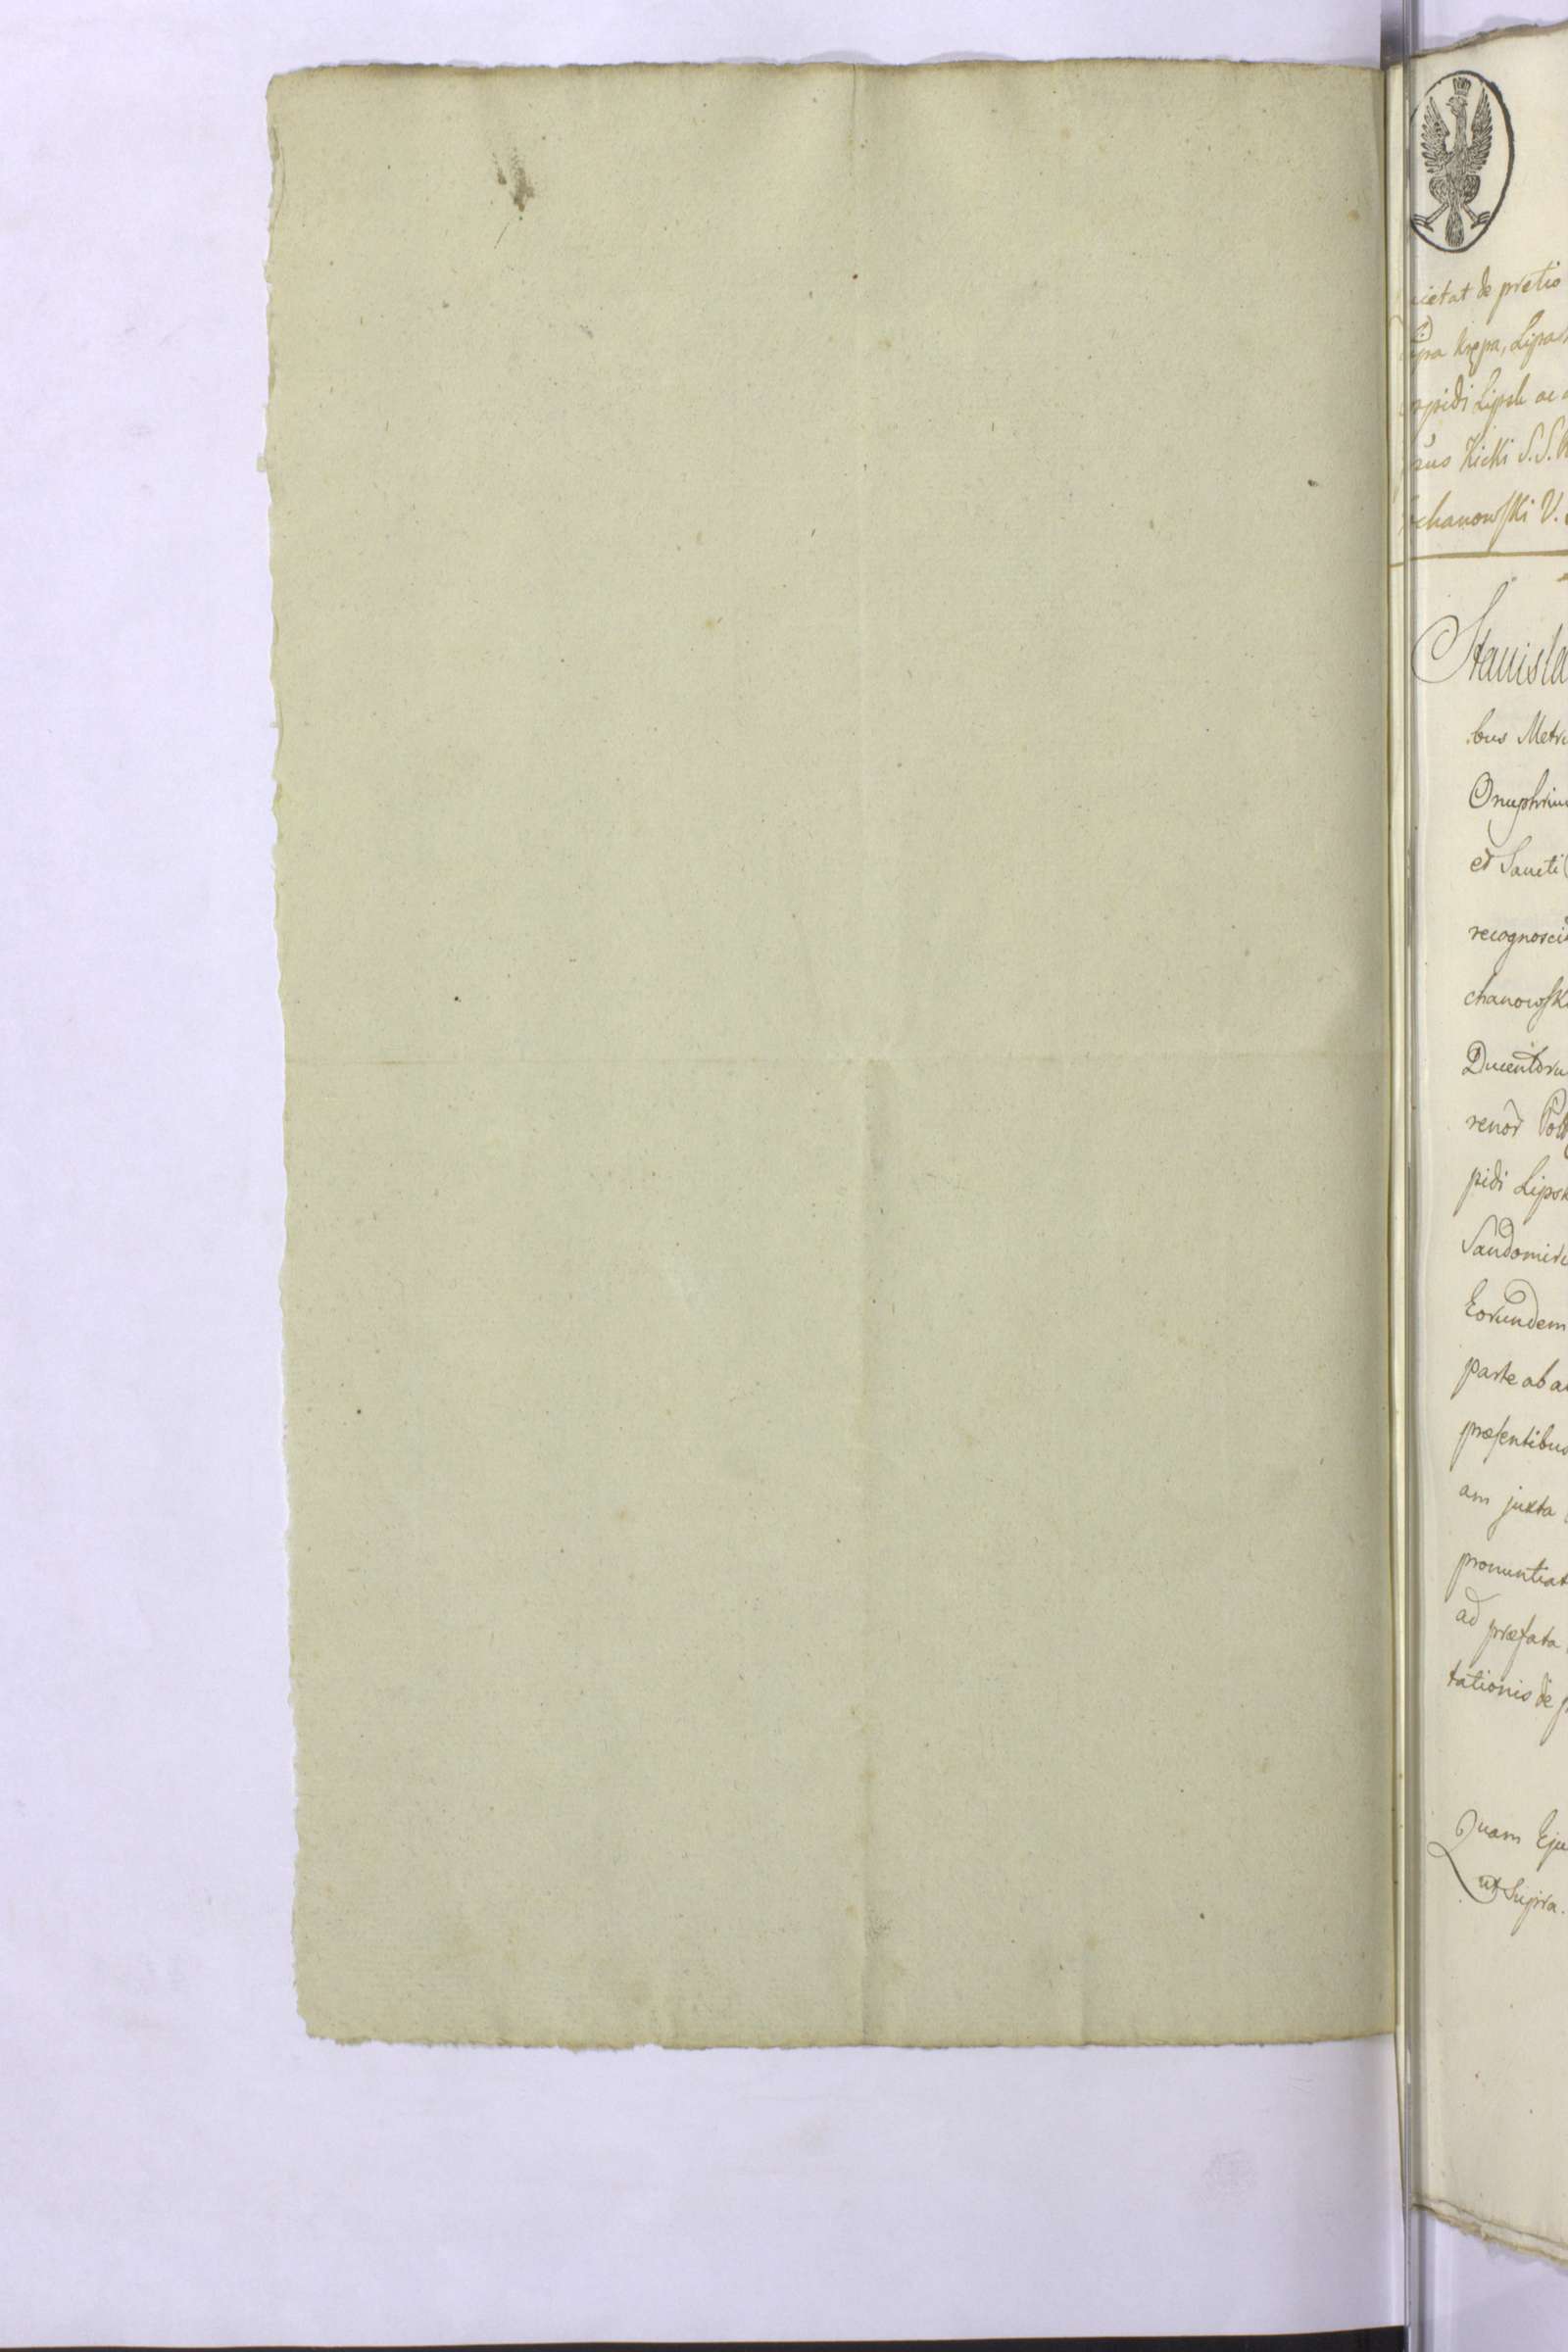 de pretio
Kręppa, Lipa
Lipsk ac
Kicki S. S.
chanowski V.
Stanisla
bus Metri
Onuphriu
et Sancti
recognosci
chanowski
Ducentoru
renor Pol
pidi Lipsk
Sandomiri
Eorundem
parte ab a
præsentibus
am juxta
pronuntiat
ad præfata
tationis de
Quam Eju
ut Supra.